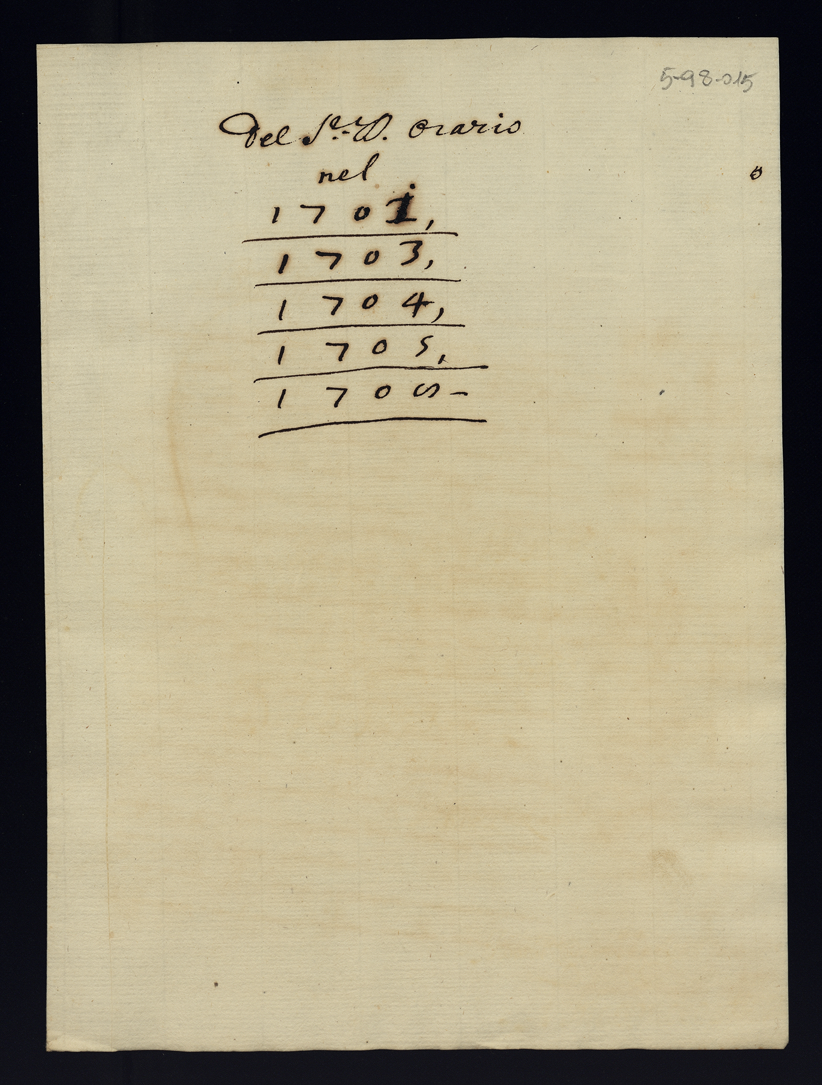 5-98-015
Del S.r D. Orazio
nel
1701,
1703,
1704,
1705,
170